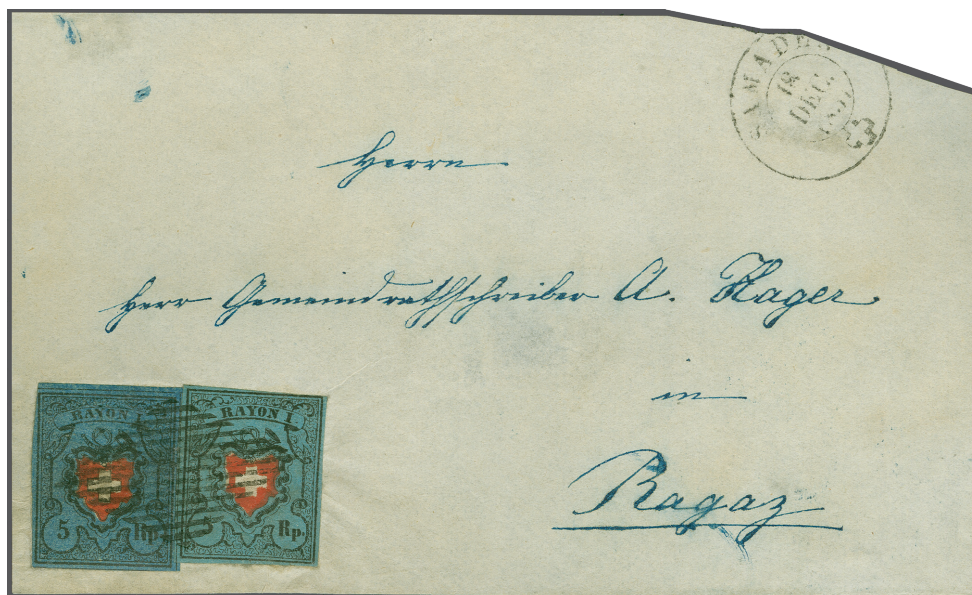 SAMADEN
18
DEC
Herrn
Herr Gemeindrathschreiber A. Hager
in
Ragaz
RAYON I
5 Rp.
RAYON I
Rp.